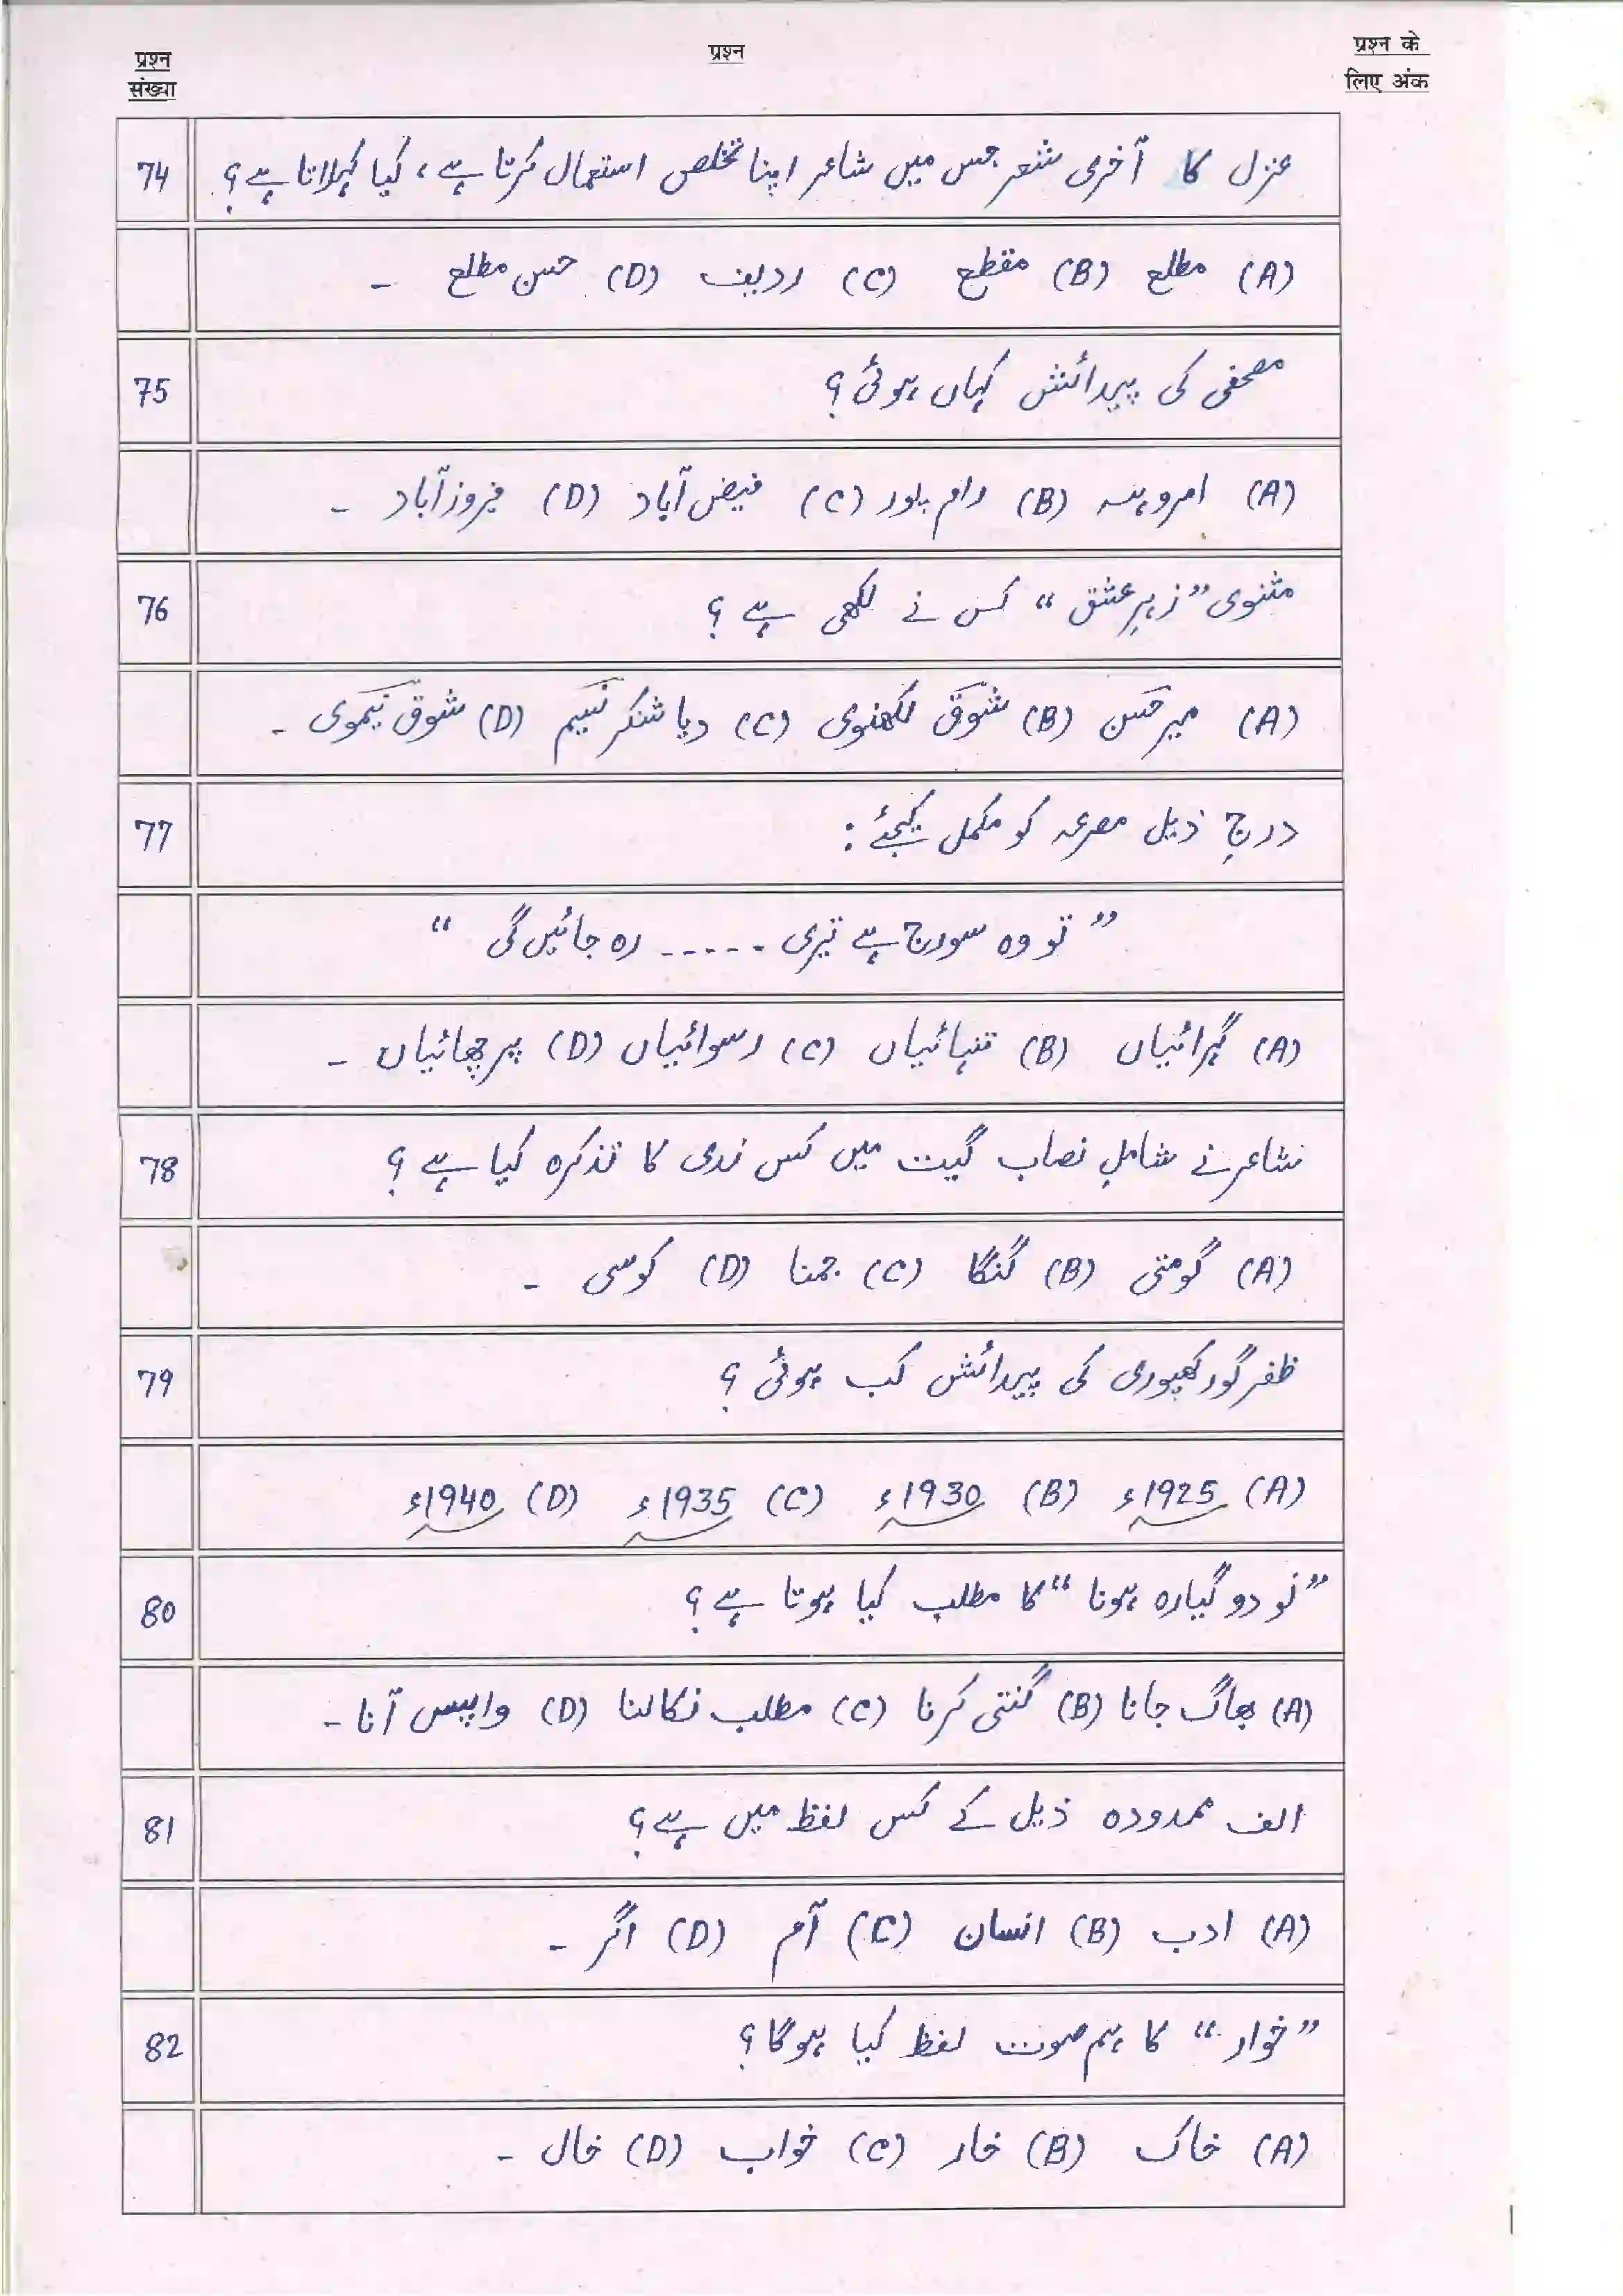 प्रश्न संख्या
प्रश्न
प्रश्न के लिए अंक
74 غزل کا آخری شعر جس میں شاعر اپنا تخلص استعمال کرتا ہے، کیا کہلاتا ہے؟
(A) مطلع (B) مقطع (C) ردیف (D) حسن مطلع ۔
75 مصحفی کی پیدائش کہاں ہوئی؟
(A) امروہہ (B) رام پور (C) فیض آباد (D) فیروزآباد ۔
76 مثنوی ”زہرِ عشق“ کس نے لکھی ہے؟
(A) میر حسن (B) شوق لکھنوی (C) دیا شنکر نسیم (D) شوق نیموی ۔
77 درجِ ذیل مصرعہ کو مکمل کیجئے:
”تو وہ سورج ہے تیری ۔۔۔۔۔ رہ جائیں گی“
(A) گہرائیاں (B) تنہائیاں (C) رسوائیاں (D) پرچھائیاں ۔
78 شاعر نے شاملِ نصاب گیت میں کس ندی کا تذکرہ کیا ہے؟
(A) گومتی (B) گنگا (C) جمنا (D) کوسی ۔
79 ظفر گورکھپوری کی پیدائش کب ہوئی؟
(A) 1925ء (B) 1930ء (C) 1935ء (D) 1940ء
80 ”نو دو گیارہ ہونا“ کا مطلب کیا ہوتا ہے؟
(A) بھاگ جانا (B) گنتی کرنا (C) مطلب نکالنا (D) واپس آنا ۔
81 الف ممدودہ ذیل کے کس لفظ میں ہے؟
(A) ادب (B) انسان (C) آم (D) اگر ۔
82 ”خوار“ کا ہم صوت لفظ کیا ہوگا؟
(A) خاک (B) خار (C) خواب (D) خال ۔